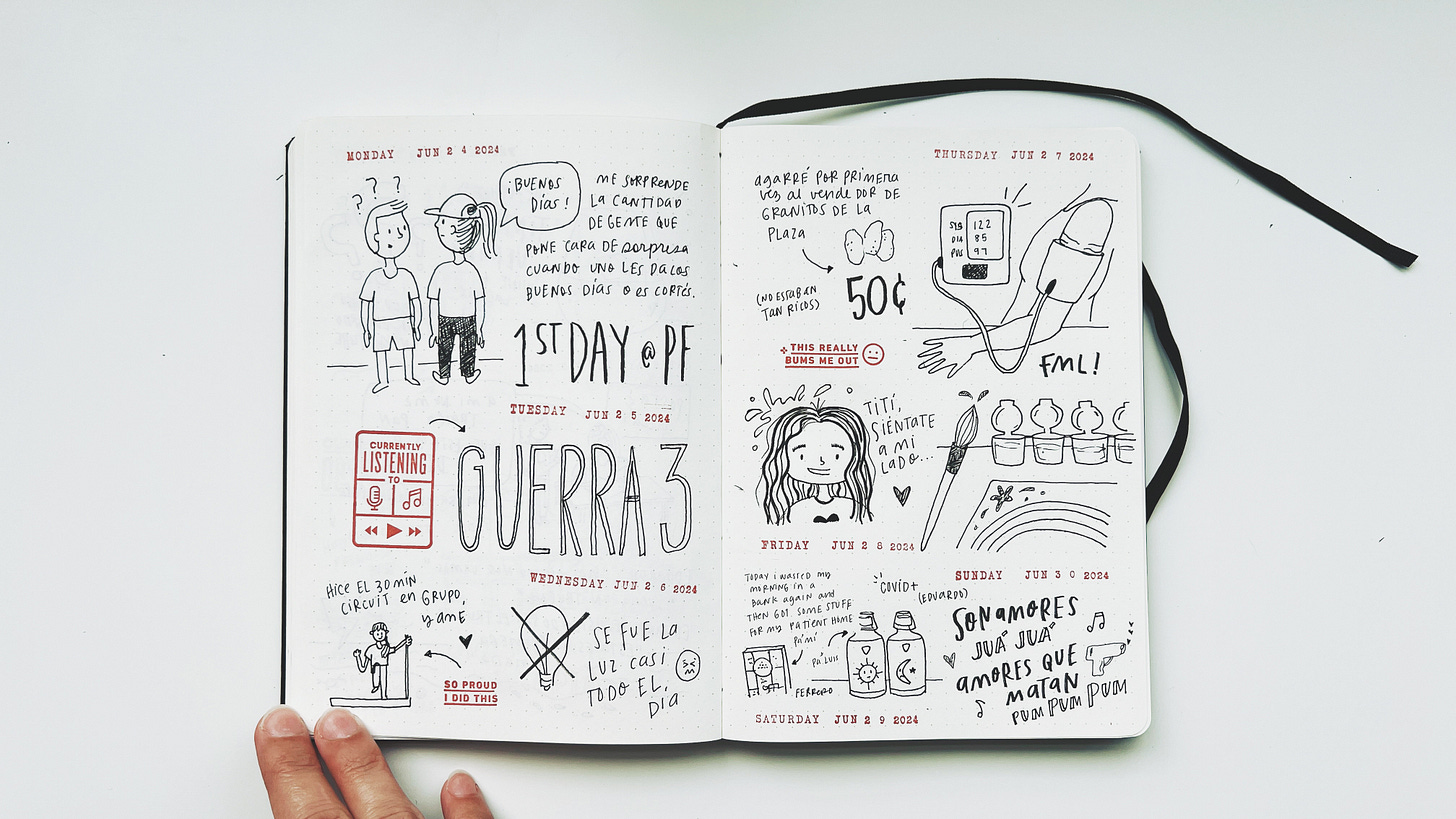 MONDAY JUN 24 2024
? ? ?
¡BUENOS
DÍAS!
ME SORPRENDE
LA CANTIDAD
DE GENTE QUE
PONE CARA DE SORPRESA
CUANDO UNO LES DA LOS
BUENOS DÍAS O ES CORTÉS.
1ST DAY @ PF
TUESDAY JUN 25 2024
CURRENTLY
LISTENING
TO
GUERRA 3
WEDNESDAY JUN 26 2024
HICE EL 30 MIN
CIRCUIT en GRUPO,
y amé
SO PROUD
I DID THIS
SE FUE La
LUZ casi
TODO EL
DÍa
THURSDAY JUN 27 2024
agarré POR PRIMERA
vez al vendeDOR DE
GRANITOS DE LA
PLAZA
(NO ESTABAN
TAN RICOS)
50¢
SYS 122
DIA 85
PUL 97
FML!
THIS REALLY
BUMS ME OUT
TITÍ,
SIÉNTATE
a mi
LADO...
FRIDAY JUN 28 2024
TODAY i wasted my
morning in a
Bank again and
THEN GOT SOME STUFF
FOR my PATIENT HOME
Pa'mí
Pa'LUIS
FERRERO
COVID+
(EDUARDO)
SATURDAY JUN 29 2024
SUNDAY JUN 30 2024
SON amORES
JUÁ JUÁ
amORES QUE
maTAN
PUM PUM PUM